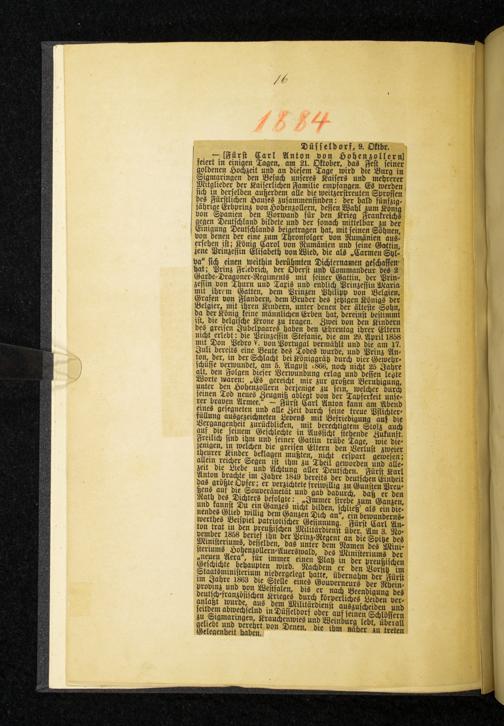 16
1884
Düsseldorf, 9. Oktbr.
— [Fürst Carl Anton von Hohenzollern]
feiert in einigen Tagen, am 21. Oktober, das Fest seiner
goldenen Hochzeit und an diesem Tage wird die Burg in
Sigmaringen den Besuch unseres Kaisers und mehrerer
Mitglieder der Kaiserlichen Familie empfangen. Es werden
sich in derselben außerdem alle die weitzerstreuten Sprossen
des Fürstlichen Hauses zusammenfinden: der bald fünfzig-
jährige Erbprinz von Hohenzollern, dessen Wahl zum König
von Spanien den Vorwand für den Krieg Frankreichs
gegen Deutschland bildete und der sonach mittelbar zu der
Einigung Deutschlands beigetragen hat, mit seinen Söhnen,
von denen der eine zum Thronfolger von Rumänien aus-
ersehen ist; König Carol von Rumänien und seine Gattin,
jene Prinzessin Elisabeth von Wied, die als „Carmen Syl-
va“ sich einen weithin berühmten Dichternamen geschaffen
hat; Prinz Friedrich, der Oberst und Commandeur des 2
Garde-Dragoner-Regiments mit seiner Gattin, der Prin-
zessin von Thurn und Taxis und endlich Prinzessin Maria
mit ihrem Gatten, dem Prinzen Philipp von Belgien,
Grafen von Flandern, dem Bruder des jetzigen Königs der
Belgier, mit ihren Kindern, unter denen der älteste Sohn,
da der König keine männlichen Erben hat, dereinst bestimmt
ist, die belgische Krone zu tragen. Zwei von den Kindern
des greisen Jubelpaares haben den Ehrentag ihrer Eltern
nicht erlebt: die Prinzessin Stefanie, die am 29. April 1858
mit Don Pedro V. von Portugal vermählt und die am 17.
Juli bereits eine Beute des Todes wurde, und Prinz An-
ton, der, in der Schlacht bei Königgrätz durch vier Gewehr-
schüsse verwundet, am 5. August 1866, noch nicht 25 Jahre
alt, den Folgen dieser Verwundung erlag und dessen letzte
Worte waren: „Es gereicht mir zur großen Beruhigung,
unter den Hohenzollern derjenige zu sein, welcher durch
seinen Tod neues Zeugniß ablegt von der Tapferkeit unse-
rer braven Armee.“ — Fürst Carl Anton kann am Abend
eines gesegneten und alle Zeit durch seine treue Pflichter-
füllung ausgezeichneten Lebens mit Befriedigung auf die
Vergangenheit zurückblicken, mit berechtigtem Stolz auch
auf die seinem Geschlechte in Aussicht stehende Zukunft.
Freilich sind ihm und seiner Gattin trübe Tage, wie die-
jenigen, in welchen die greisen Eltern den Verlust zweier
theurer Kinder beklagen mußten, nicht erspart gewesen;
allein reicher Segen ist ihm zu Theil geworden und alle-
zeit die Liebe und Achtung aller Deutschen. Fürst Karl
Anton brachte im Jahre 1849 bereits der deutschen Einheit
das größte Opfer; er verzichtete freiwillig zu Gunsten Preu-
ßens auf die Souveränetät und gab dadurch, daß er den
Rath des Dichters befolgte: „Immer strebe zum Ganzen,
und kannst Du ein Ganzes nicht bilden, schließ' als ein die-
nendes Glied willig dem Ganzen Dich an“, ein bewunderns-
werthes Beispiel patriotischer Gesinnung. Fürst Carl An-
ton trat in den preußischen Militärdienst über. Am 3. No-
vember 1858 berief ihn der Prinz-Regent an die Spitze des
Ministeriums, desselben, das unter dem Namen des Mini-
steriums Hohenzollern-Auerswald, des Ministeriums der
„neuen Aera“, für immer einen Platz in der preußischen
Geschichte behaupten wird. Nachdem er den Vorsitz im
Staatsministerium niedergelegt hatte, übernahm der Fürst
im Jahre 1863 die Stelle eines Gouverneurs der Rhein-
provinz und von Westfalen, bis er nach Beendigung des
deutsch-französischen Krieges durch körperliches Leiden ver-
anlaßt wurde, aus dem Militärdienst auszuscheiden und
seitdem abwechselnd in Düsseldorf oder auf seinen Schlössern
zu Sigmaringen, Krauchenwies und Weinburg lebt, überall
geliebt und verehrt von Denen, die ihm näher zu treten
Gelegenheit haben.